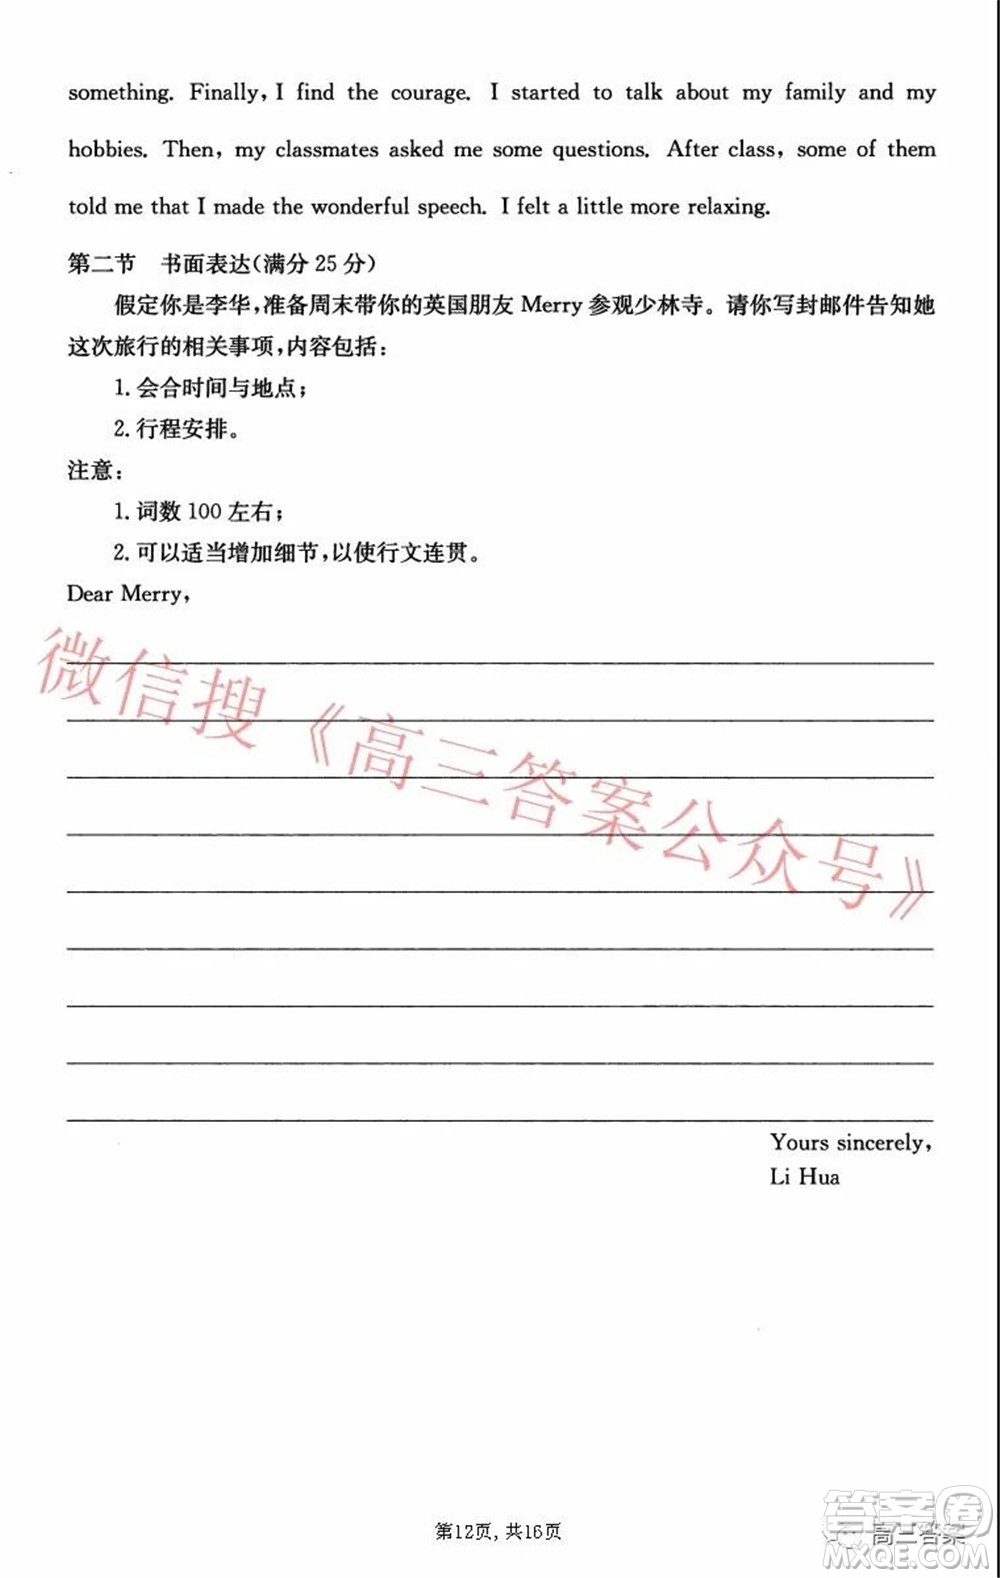 something. Finally, I find the courage. I started to talk about my family and my
hobbies. Then, my classmates asked me some questions. After class, some of them
told me that I made the wonderful speech. I felt a little more relaxing.
第二节 书面表达(满分 25 分)
假定你是李华,准备周末带你的英国朋友 Merry 参观少林寺。请你写封邮件告知她
这次旅行的相关事项,内容包括:
1. 会合时间与地点;
2. 行程安排。
注意:
1. 词数 100 左右;
2. 可以适当增加细节,以使行文连贯。
Dear Merry,
微信搜《高三答案公众号》
Yours sincerely,
Li Hua
第12页,共16页
高三答案
答案圈
MXQE.COM